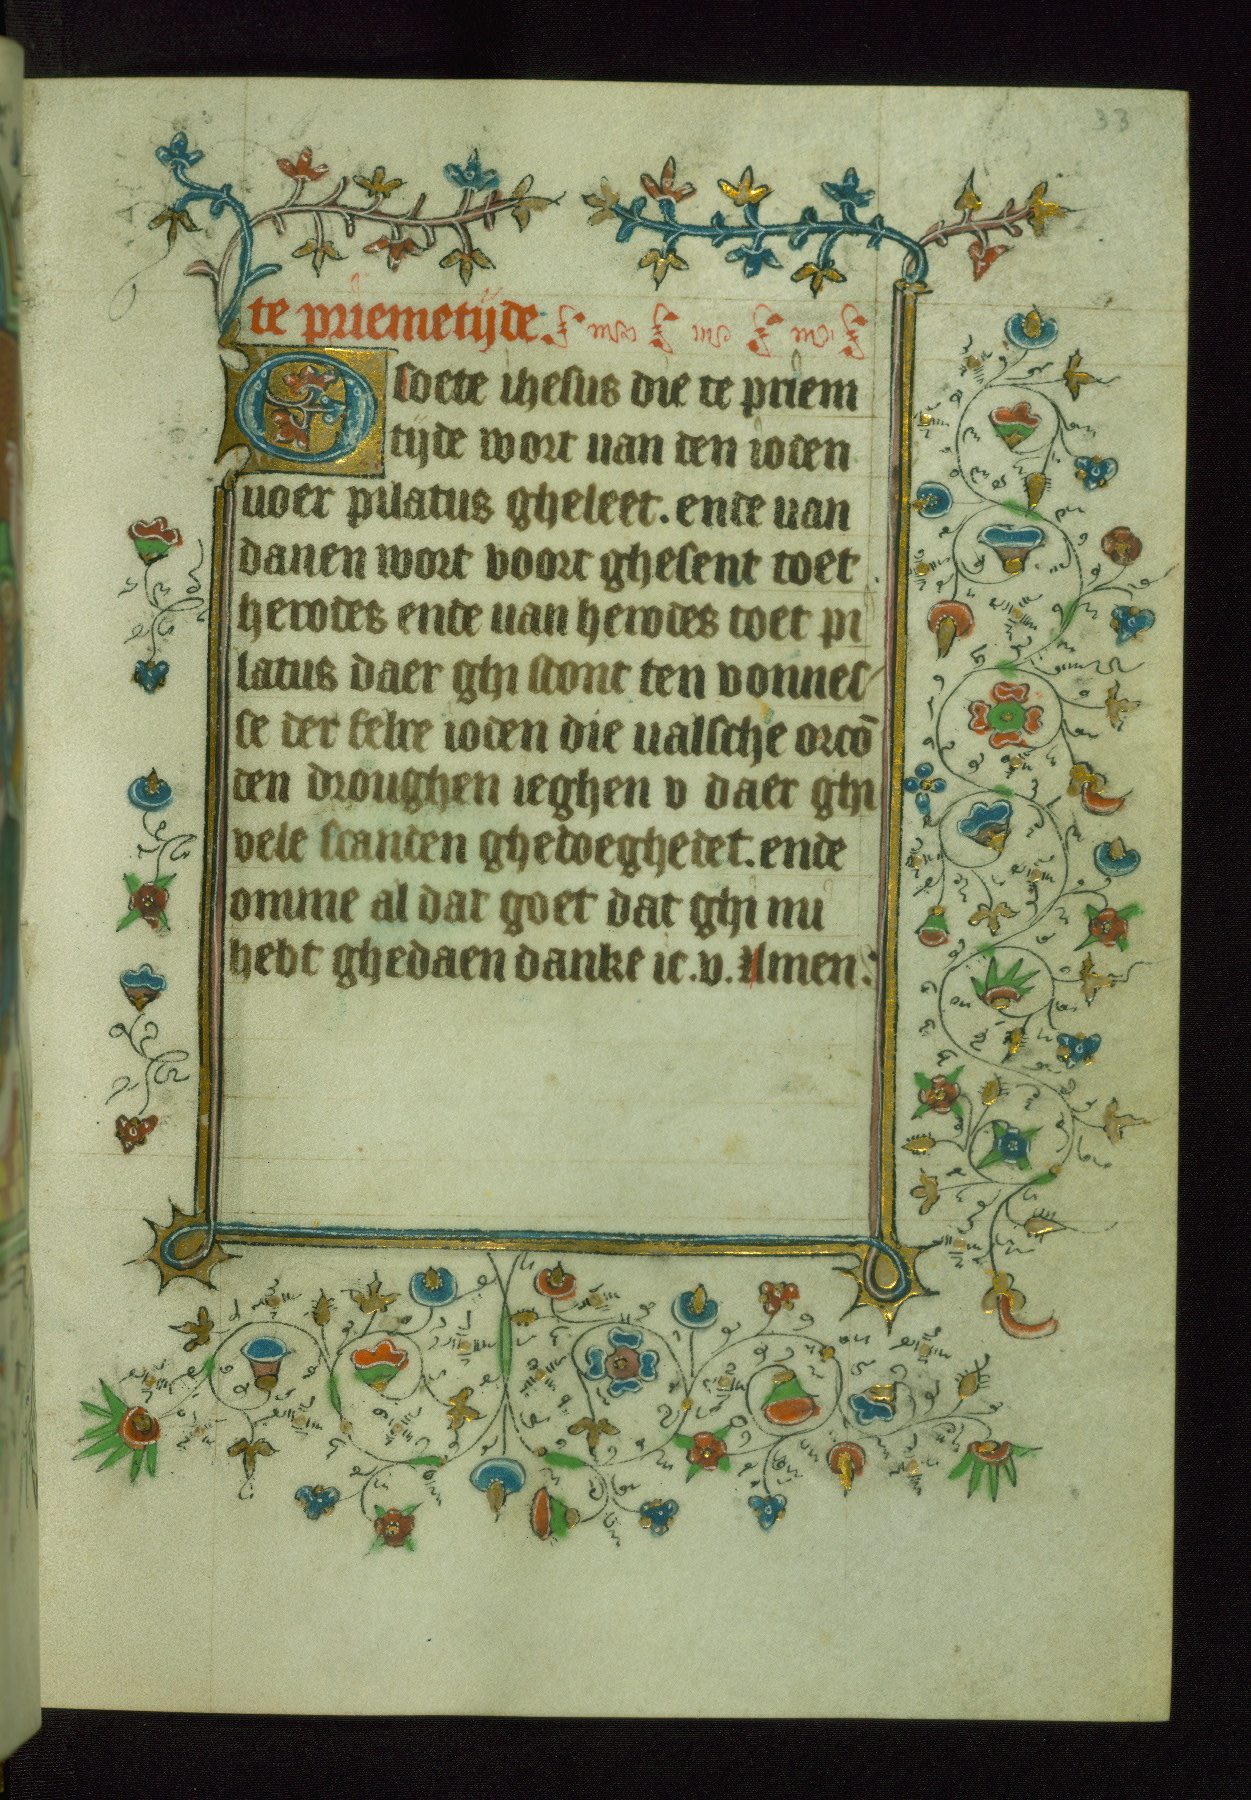 33
te priemetijde.
O soete ihesus die te priem
tijde wort uan den ioden
uoer pilatus gheleet. ende uan
danen wort voort ghesent toet
herodes ende uan herodes toet pi
latus daer ghi stont ten vonnes
se der felre ioden die ualsche orcō
den droughen ieghen v daer ghi
vele scanden ghedoeghedet. ende
omme al dat goet dat ghi nu
hebt ghedaen danke ic .v. Amen.